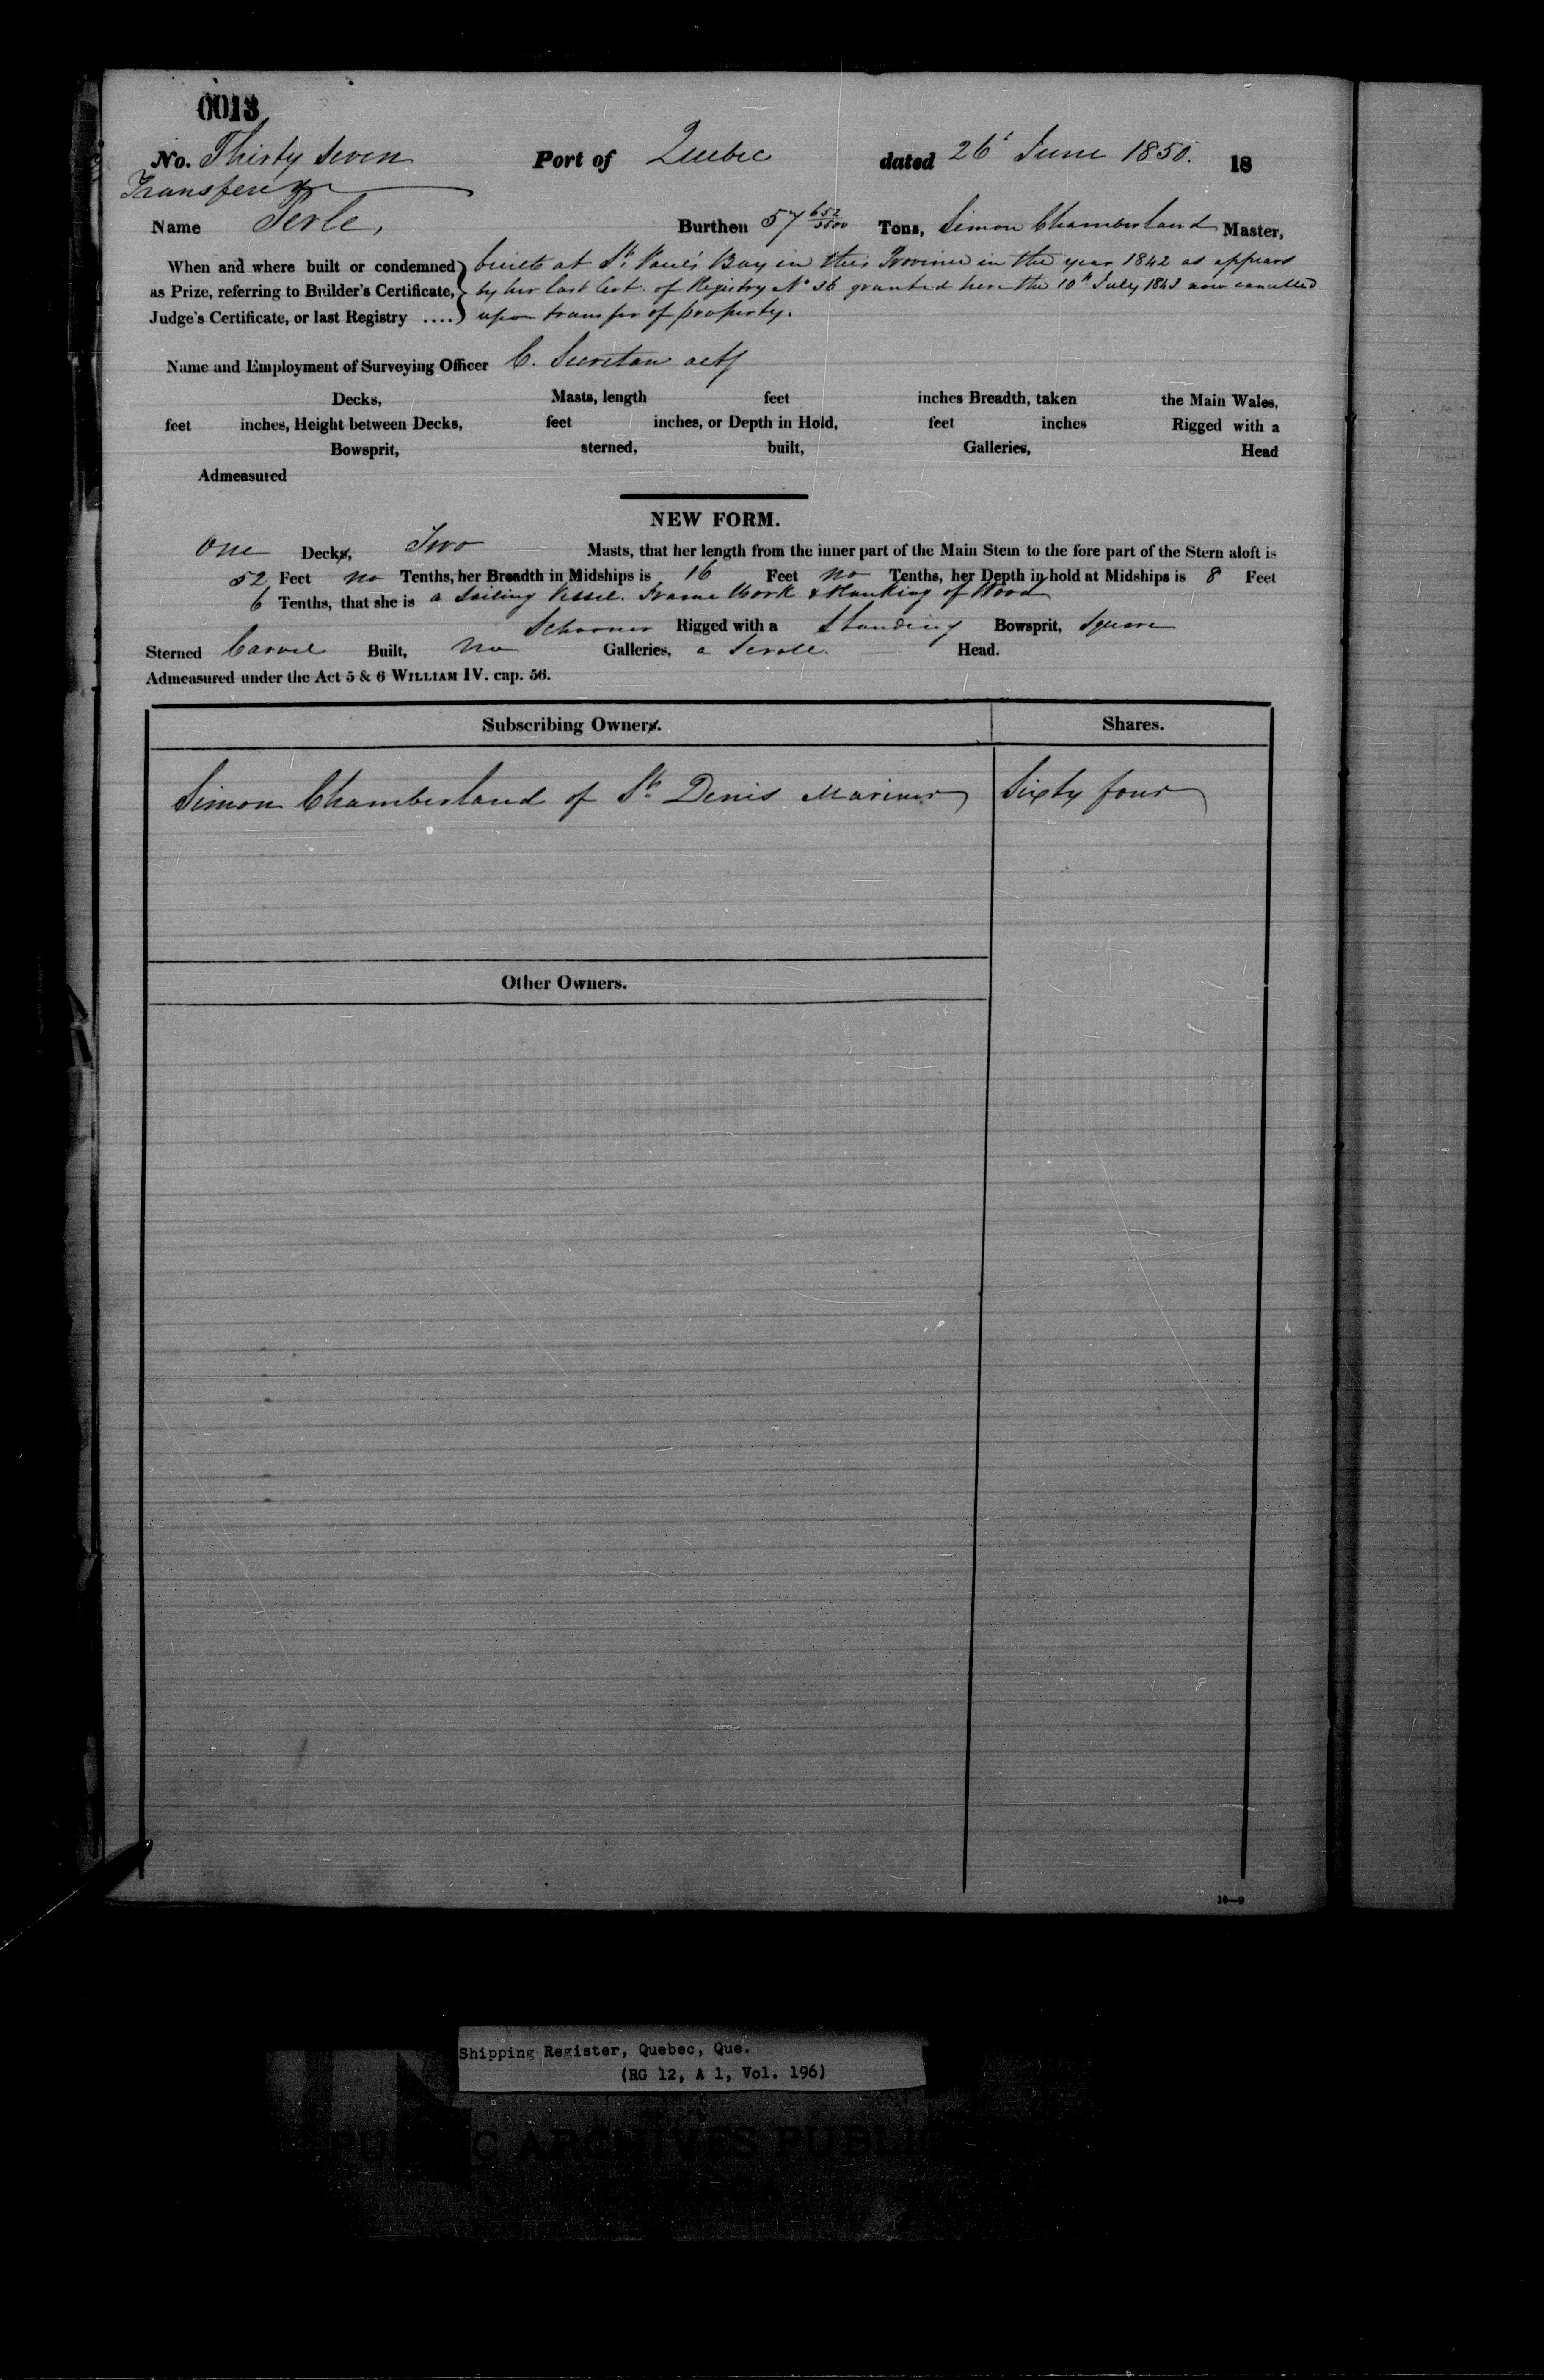 0013
No. Thirty Seven Port of Quebec dated 26t June 1850. 18
Transfer
Name Perle, Burthen 57 652/3500 Tons, Simon Chamberland Master,
When and where built or condemned built at St. Paul's Bay in this Province in the year 1842 as appears
as Prize, referring to Builder's Certificate, by her last Cert. of Registry No 36 granted here the 10th July 1843 now cancelled
Judge's Certificate, or last Registry .... upon transfer of property.
Name and Employment of Surveying Officer C. Secretan actg
Decks, Masts, length feet inches Breadth, taken the Main Wales,
feet inches, Height between Decks, feet inches, or Depth in Hold, feet inches Rigged with a
Bowsprit, sterned, built, Galleries, Head
Admeasured
NEW FORM.
One Decks, Two Masts, that her length from the inner part of the Main Stem to the fore part of the Stern aloft is
52 Feet no Tenths, her Breadth in Midships is 16 Feet no Tenths, her Depth in hold at Midships is 8 Feet
6 Tenths, that she is a Sailing Vessel. Frame Work & Planking of Wood
Schooner Rigged with a Standing Bowsprit, Square
Sterned Carvel Built, No Galleries, a Scroll Head.
Admeasured under the Act 5 & 6 WILLIAM IV. cap. 56.
Subscribing Owners. Shares.
Simon Chamberland of St. Denis Mariner Sixty four
Other Owners.
10—9
Shipping Register, Quebec, Que.
(RG 12, A 1, Vol. 196)
ARCHIVES